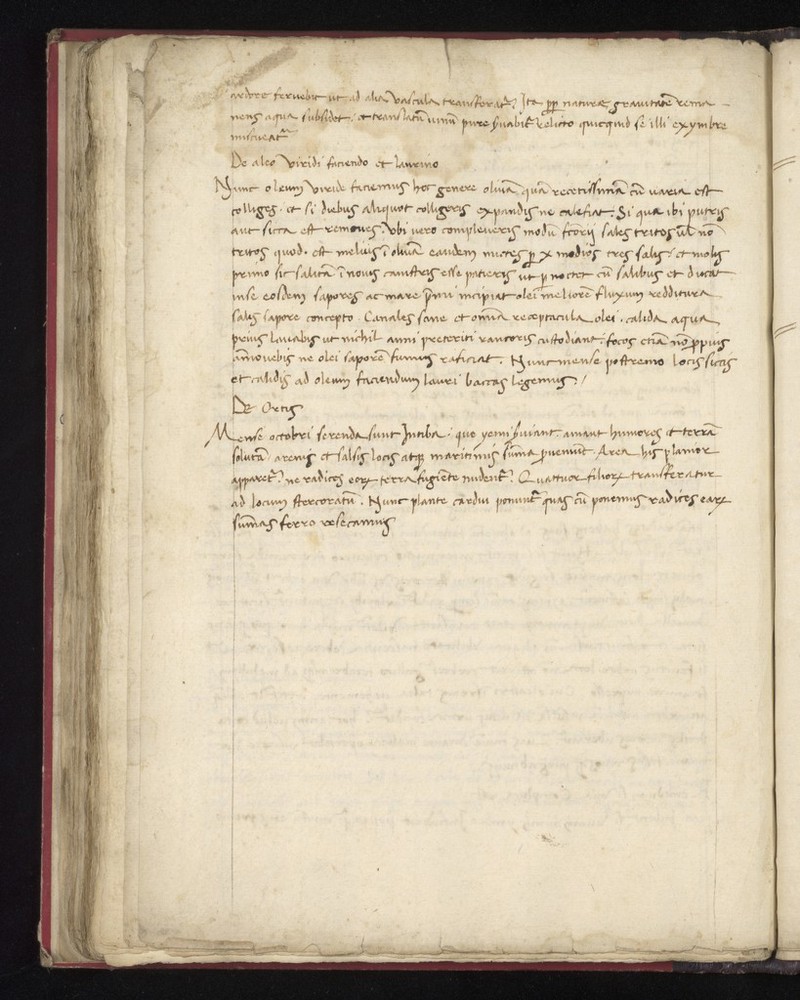 ardore feruebit ut ad alia vascula transferatr̃. Ita ꝓp̃ naturæ grauitatẽ rema
nens aqua subsidet. et translatũ uinũ pure ẜuabit̃ relicto quicquid se illi ex ymbre
miscueat̃
De oleo viridi faciendo et laurino
Nunc oleum viride faciemus hoc genere oliuã quã recetissimã cũ uaria est
colliges. et si diebus aliquot colligeris expandis ne calefiat. Si qua ibi putris
aut sicca est remoues. Vbi uero compleueris modũ factorij sales tritos ul̃ nõ
tritos quod est melius ĩ oliuã eandem mictes ꝑ x modios tres salis. et molis
primo sic salitã ĩ nouis canistris esse patieris ut ꝑnoctet cũ salibus et ducat
inse eosdem sapores ac mane p̃mi incipiat olei meliorẽ fluxum redditura
salis sapore concepto. Canales sane et omĩa receptacula olei calida aqua
prius lauabis ut nichil anni preteriti rancoris custodiant. focos etiã nõ ꝓpius
ammouebis ne olei saporẽ fumus inficiat. Nunc mense postremo locis siccis
et calidis ad oleum faciendum lauri baccas legemus /
De Ortis
Mense octobri serenda sunt Intiba. que yemi ẜuiant. amant humores et terrã
solutã. arenis et salsis locis atqꝫ maritimis sũma ꝓueniũt. Area his planior
apparet̃. ne radices eoꝝ terra fugiẽte nudent̃. Quattuor folioꝝ transferatur
ad locum stercoratũ. Nunc plante cardui ponunt̃ quas cũ ponemus radices eaꝝ
sũmas ferro resecamus